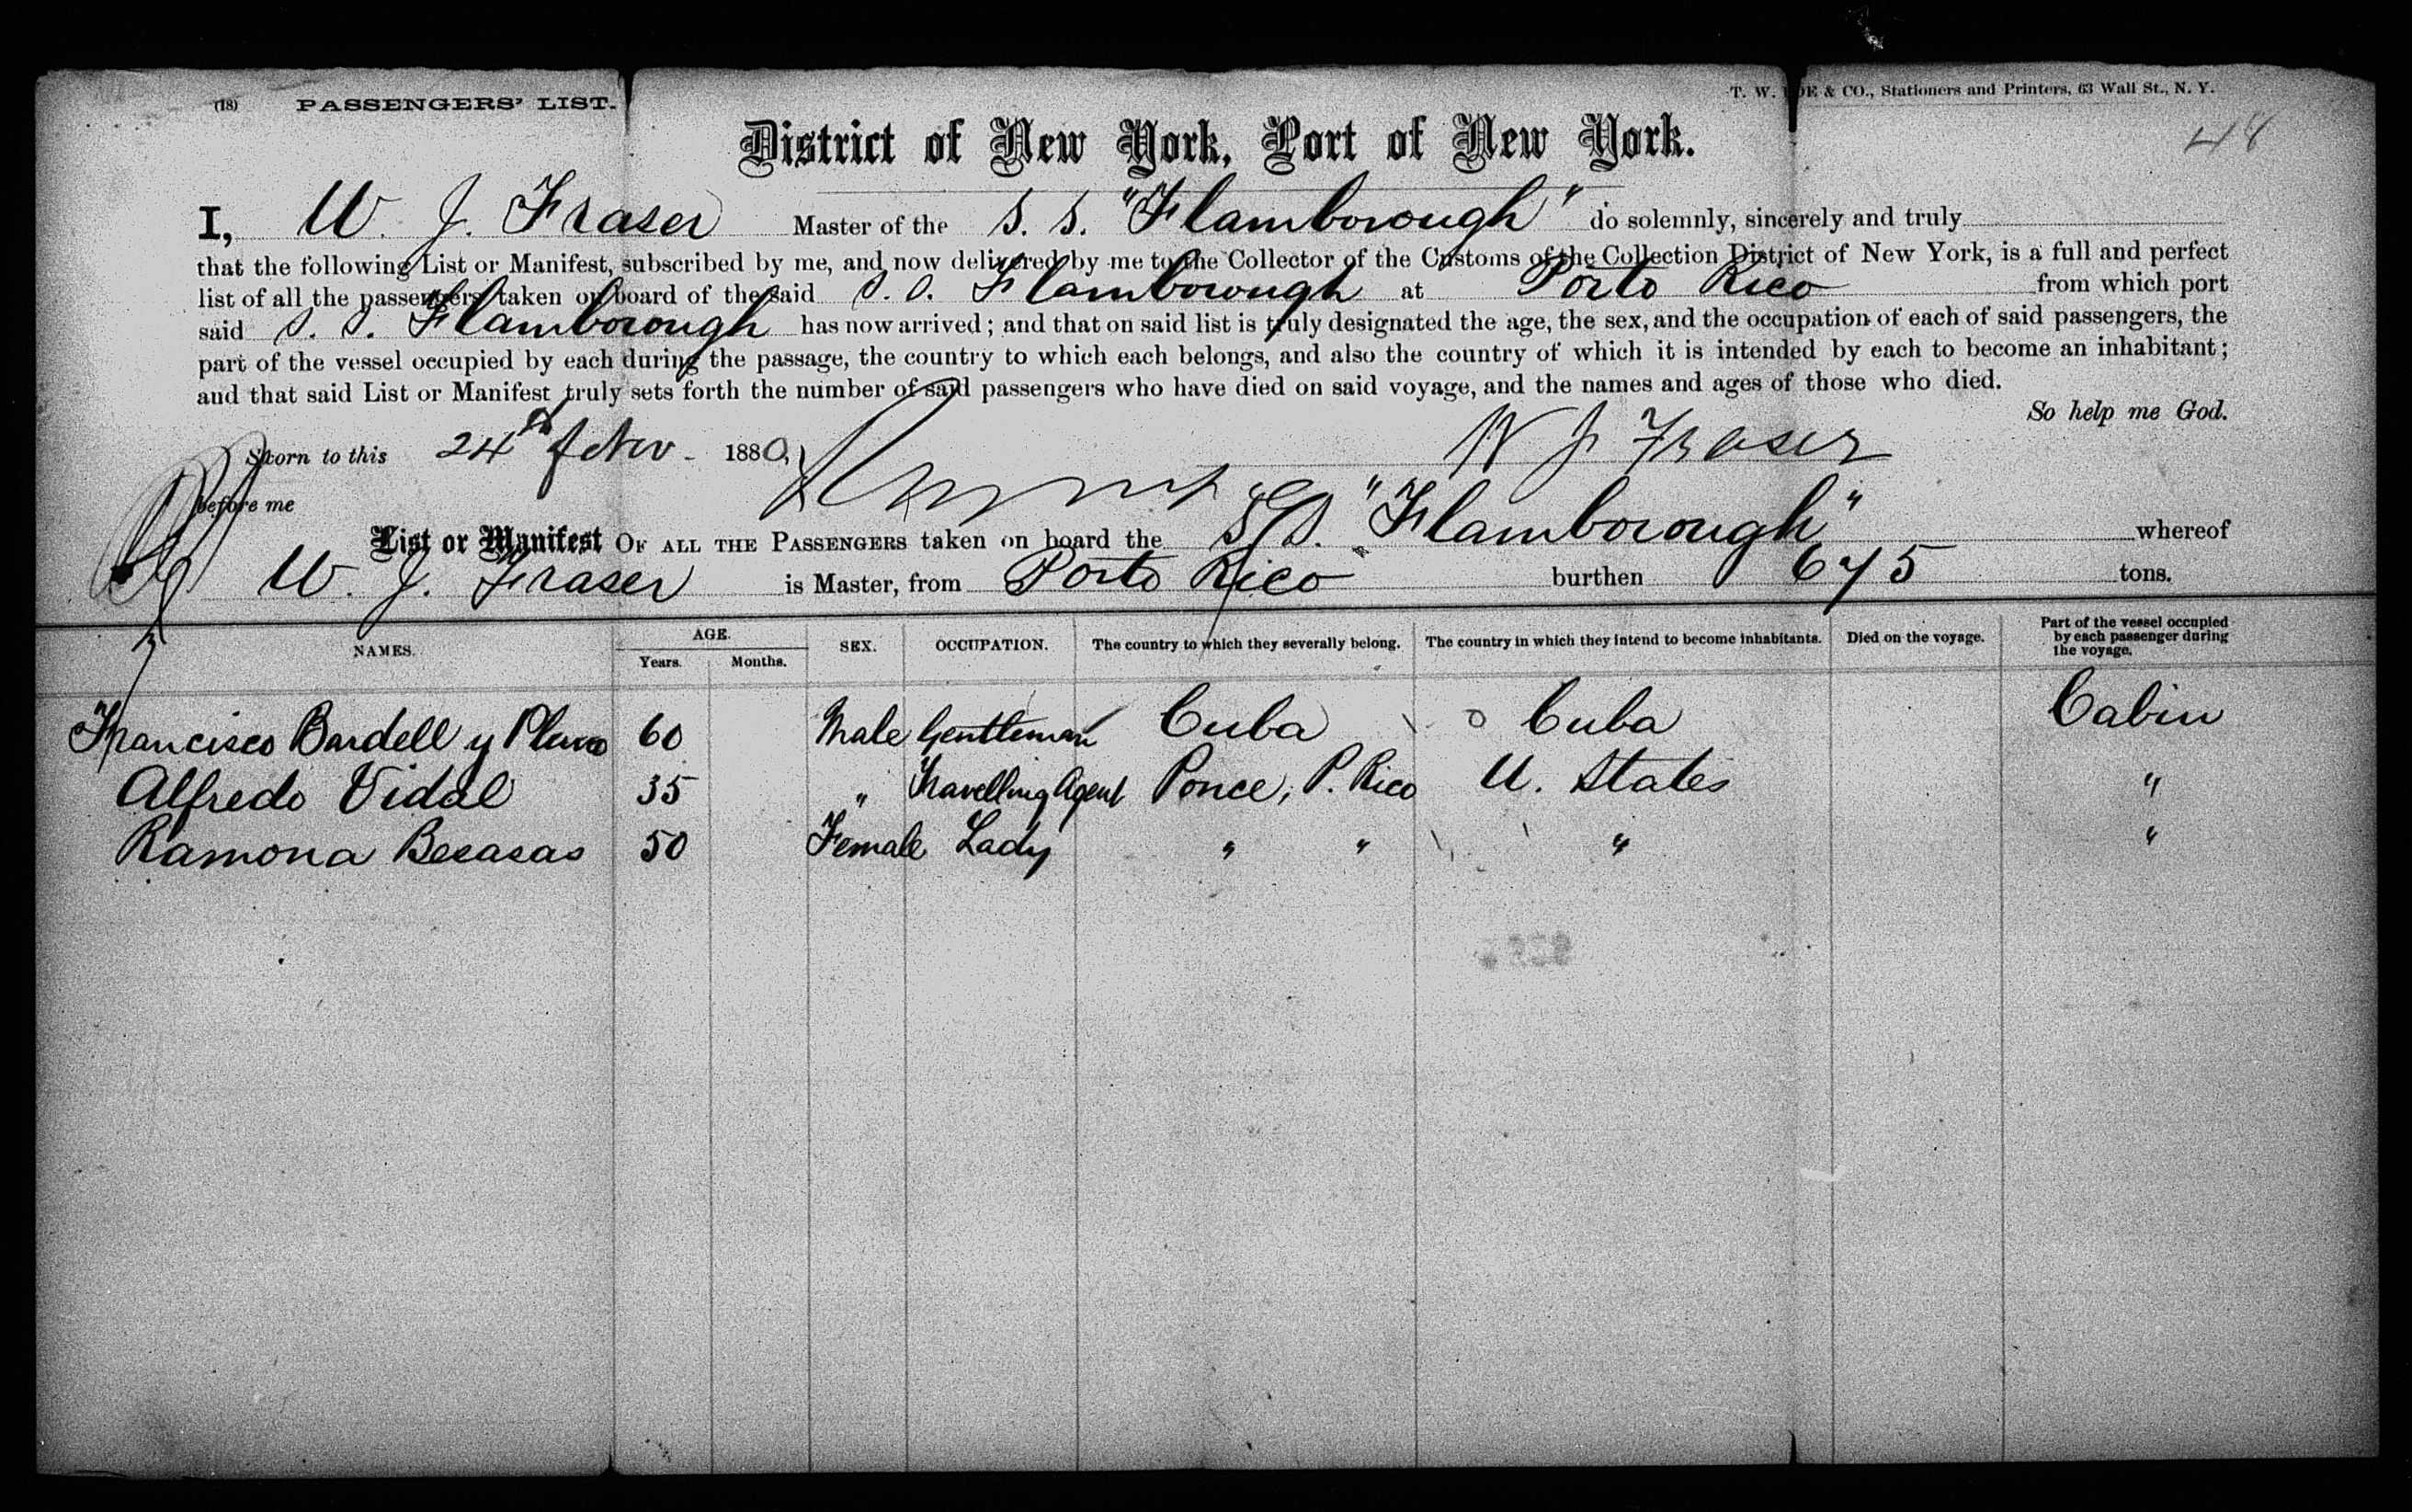 (18) PASSENGERS' LIST.
T. W. & CO., Stationers and Printers, 63 Wall St., N. Y.
48
District of New York, Port of New York.
I, W. J. Fraser Master of the S. S. "Flamborough" do solemnly, sincerely and truly
that the following List or Manifest, subscribed by me, and now delivered by me to the Collector of the Customs of the Collection District of New York, is a full and perfect
list of all the passengers taken on board of the said S. S. Flamborough at Porto Rico from which port
said S. S. Flamborough has now arrived; and that on said list is truly designated the age, the sex, and the occupation of each of said passengers, the
part of the vessel occupied by each during the passage, the country to which each belongs, and also the country of which it is intended by each to become an inhabitant;
and that said List or Manifest truly sets forth the number of said passengers who have died on said voyage, and the names and ages of those who died.
So help me God.
Sworn to this 24th 1880, W J Fraser
before me
List or Manifest OF ALL THE PASSENGERS taken on board the S.S. "Flamborough" whereof
W. J. Fraser is Master, from Porto Rico burthen 675 tons.
NAMES. AGE. Years. Months. SEX. OCCUPATION. The country to which they severally belong. The country in which they intend to become inhabitants. Died on the voyage. Part of the vessel occupied by each passenger during the voyage.
Francisco Bardell y 60 Male Gentleman Cuba Cuba Cabin
Alfredo Vidal 35 " Travelling Agent Ponce, P. Rico U. States "
Ramona Becasas 50 Female Lady " " " "